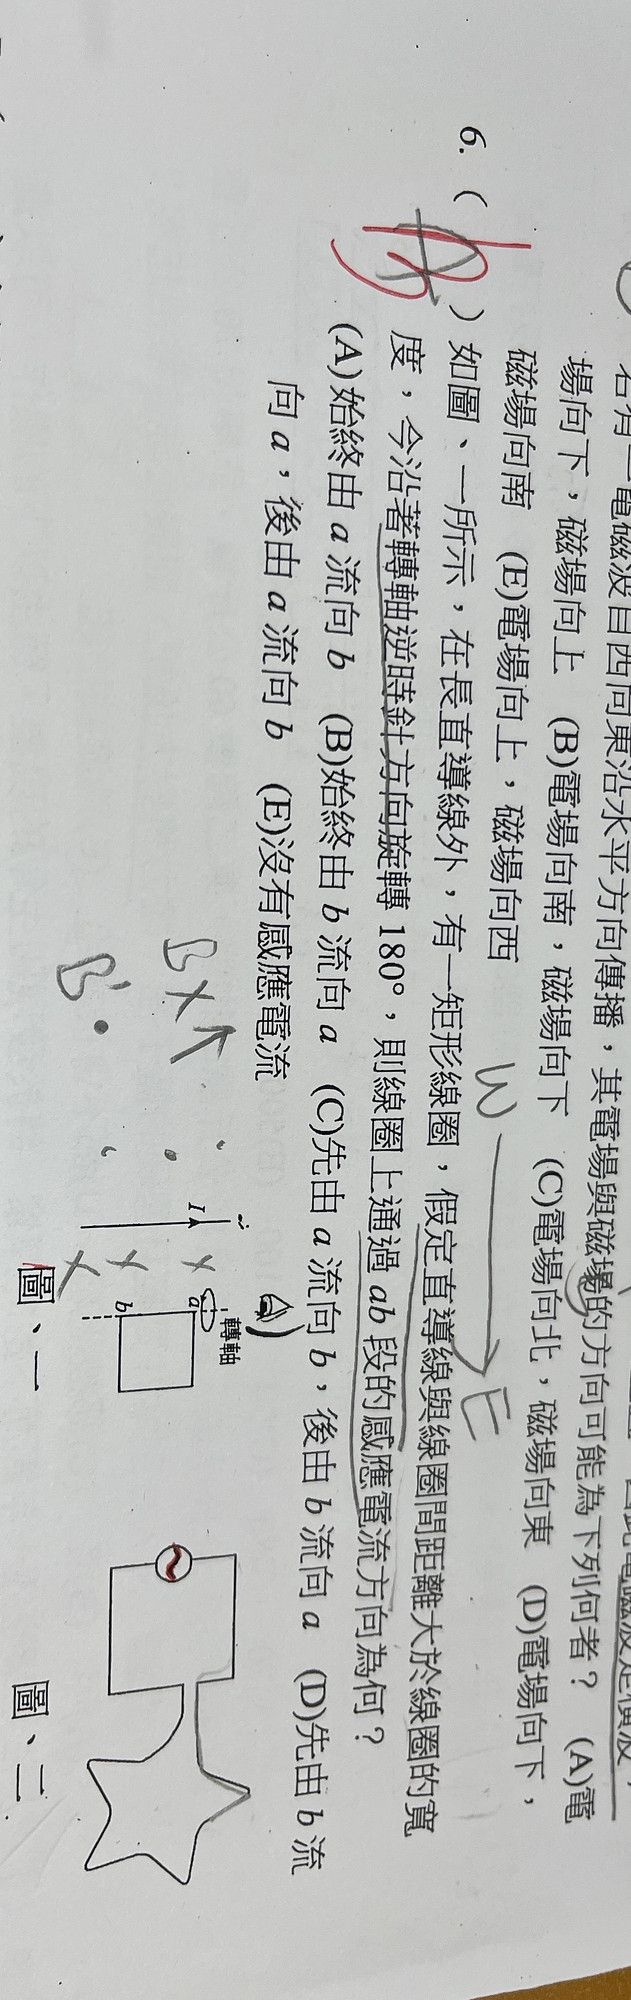 右有一電磁波自西向東沿水平方向傳播，其電場與磁場的方向可能為下列何者？ (A)電
場向下，磁場向上 (B)電場向南，磁場向下 (C)電場向北，磁場向東 (D)電場向下，
磁場向南 (E)電場向上，磁場向西
W E
6. ( B ) 如圖、一所示，在長直導線外，有一矩形線圈，假定直導線與線圈間距離大於線圈的寬
度，今沿著轉軸逆時針方向旋轉 180°，則線圈上通過 ab 段的感應電流方向為何？
(A)始終由 a 流向 b (B)始終由 b 流向 a (C)先由 a 流向 b，後由 b 流向 a (D)先由 b 流
向 a，後由 a 流向 b (E)沒有感應電流
轉軸
I
a
b
B × ↑
B' •
圖、一
圖、二